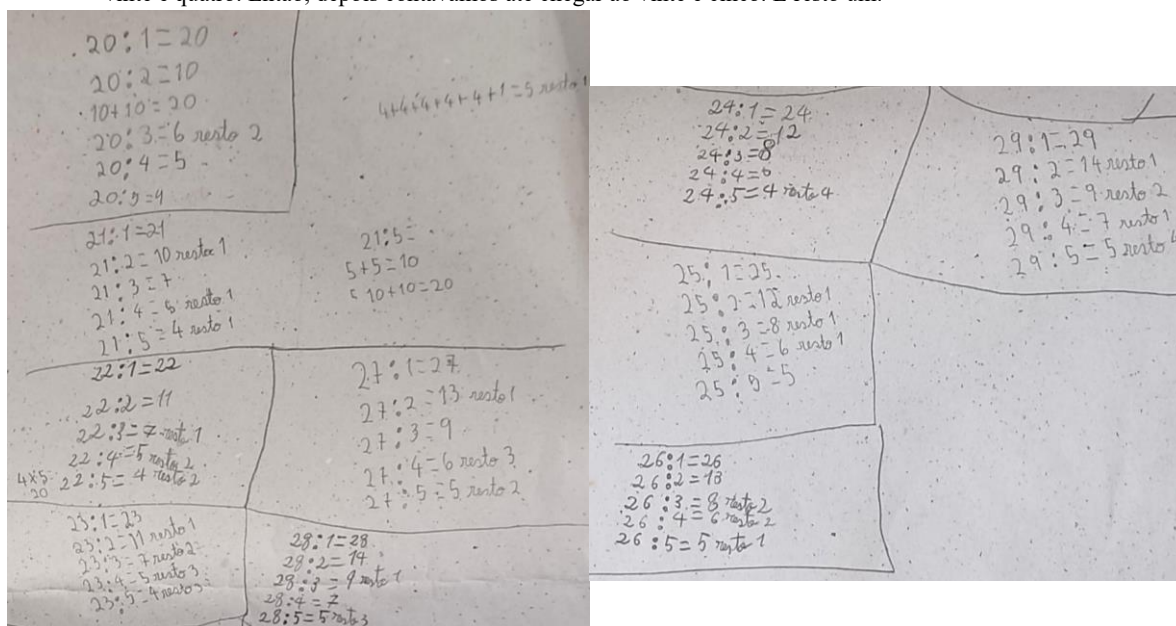 vinte e quatro. Então, depois contávamos até chegar ao vinte e cinco. E resto um.
20:1=20
20:2=10
10+10=20
20:3=6 resto 2
20:4=5
20:5=4
4+4+4+4+4+1=5 resto 1
21:1=21
21:2=10 resto 1
21:3=7
21:4=5 resto 1
21:5=4 resto 1
21:5=
5+5=10
10+10=20
22:1=22
22:2=11
22:3=7 resto 1
22:4=5 resto 2
22:5=4 resto 2
4x5
20
27:1=27
27:2=13 resto 1
27:3=9
27:4=6 resto 3
27:5=5 resto 2
23:1=23
23:2=11 resto 1
23:3=7 resto 2
23:4=5 resto 3
23:5=4 resto 3
28:1=28
28:2=14
28:3=9 resto 1
28:4=7
28:5=5 resto 3
24:1=24
24:2=12
24:3=8
24:4=6
24:5=4 resto 4
29:1=29
29:2=14 resto 1
29:3=9 resto 2
29:4=7 resto 1
29:5=5 resto 4
25:1=25
25:2=12 resto 1
25:3=8 resto 1
25:4=6 resto 1
25:5=5
26:1=26
26:2=13
26:3=8 resto 2
26:4=6 resto 2
26:5=5 resto 1